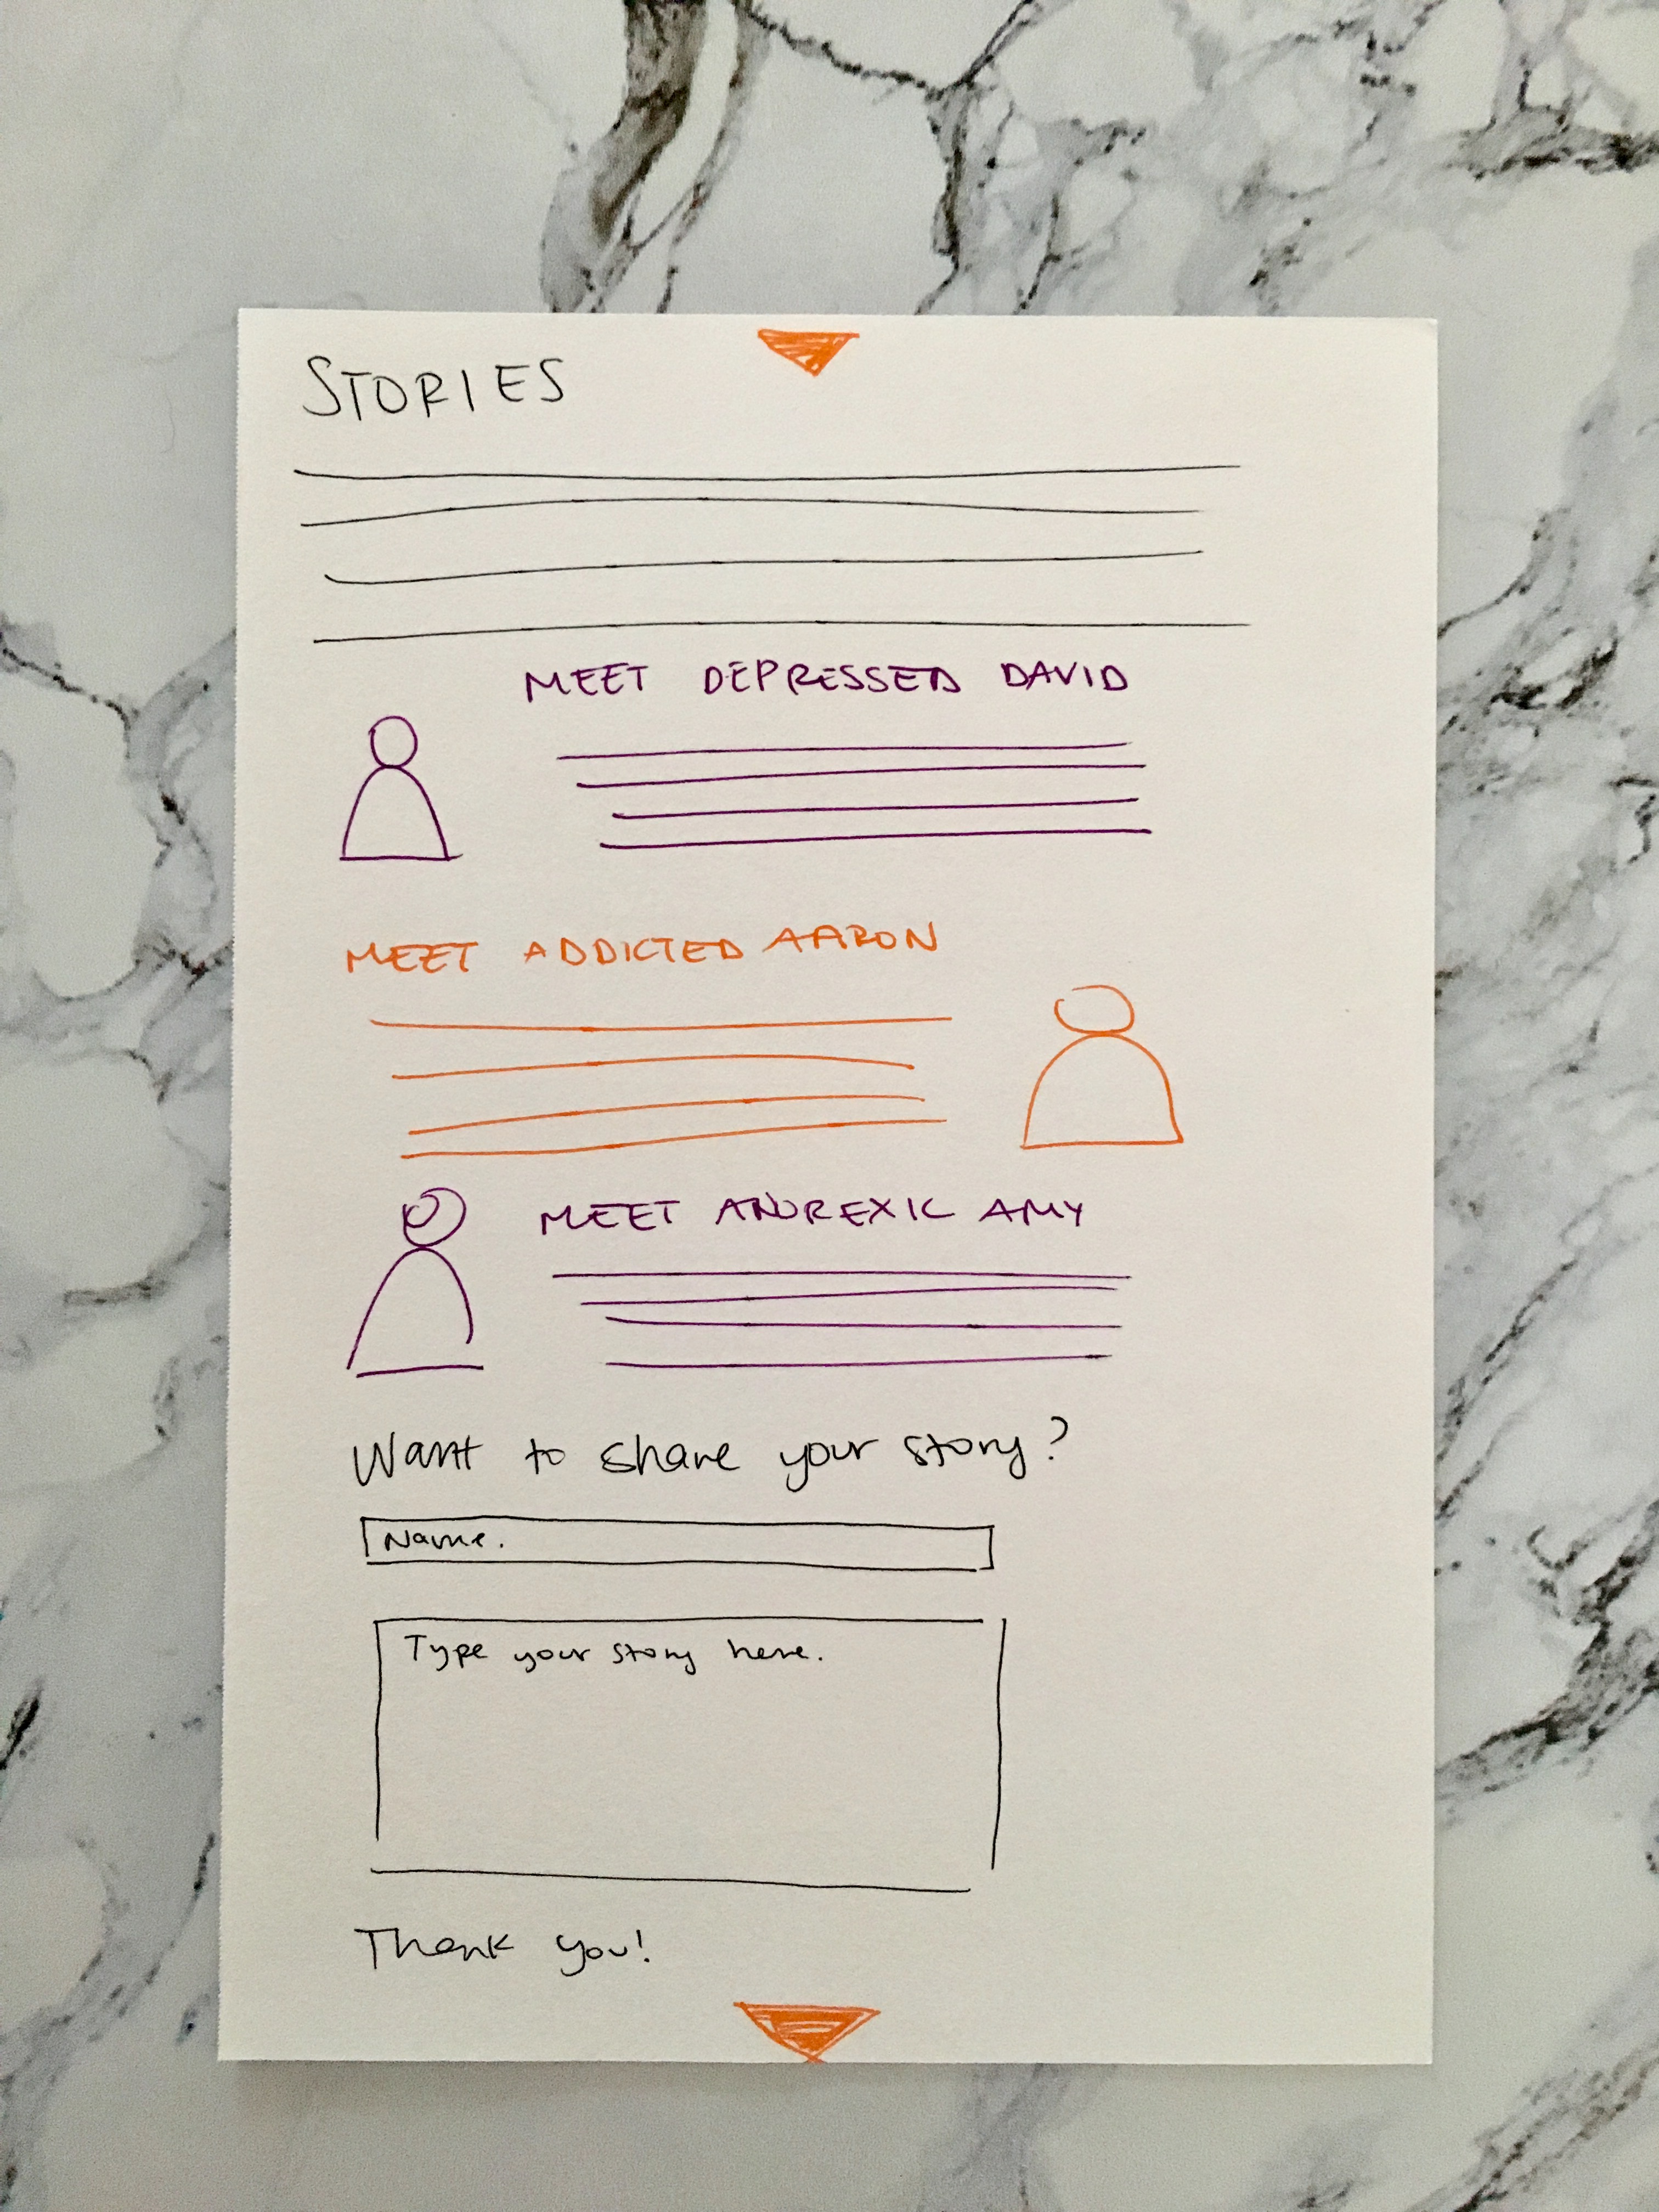 STORIES
MEET DEPRESSED DAVID
MEET ADDICTED AARON
MEET ANOREXIC AMY
Want to share your story?
Name.
Type your story here.
Thank you!